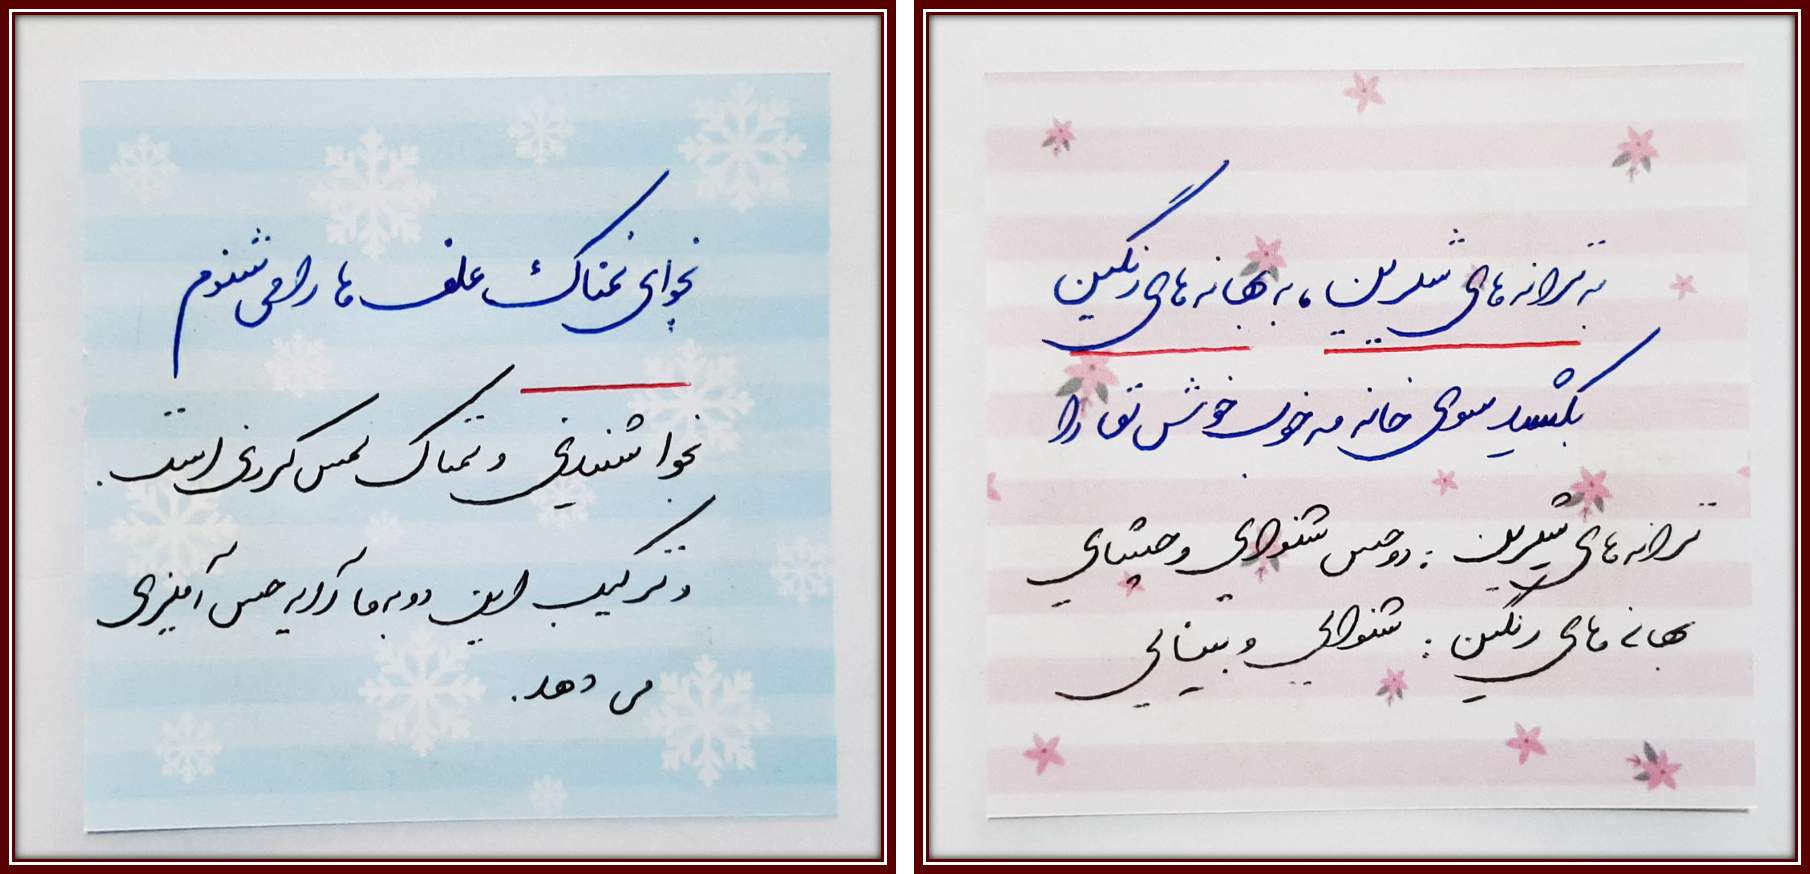 به ترانه های شیرین ، به بهانه های رنگین
بکشید سوی خانه مه خوب خوش لقا را
ترانه های شیرین : دو حس شنوایی و چشایی
بهانه های رنگین : شنوایی و بینایی
نجوای نمناک علف ها را می شنوم
نجوا شنیدنی و نمناک لمس کردنی است.
و ترکیب این دو به ما آرایه حس آمیزی
می دهد.